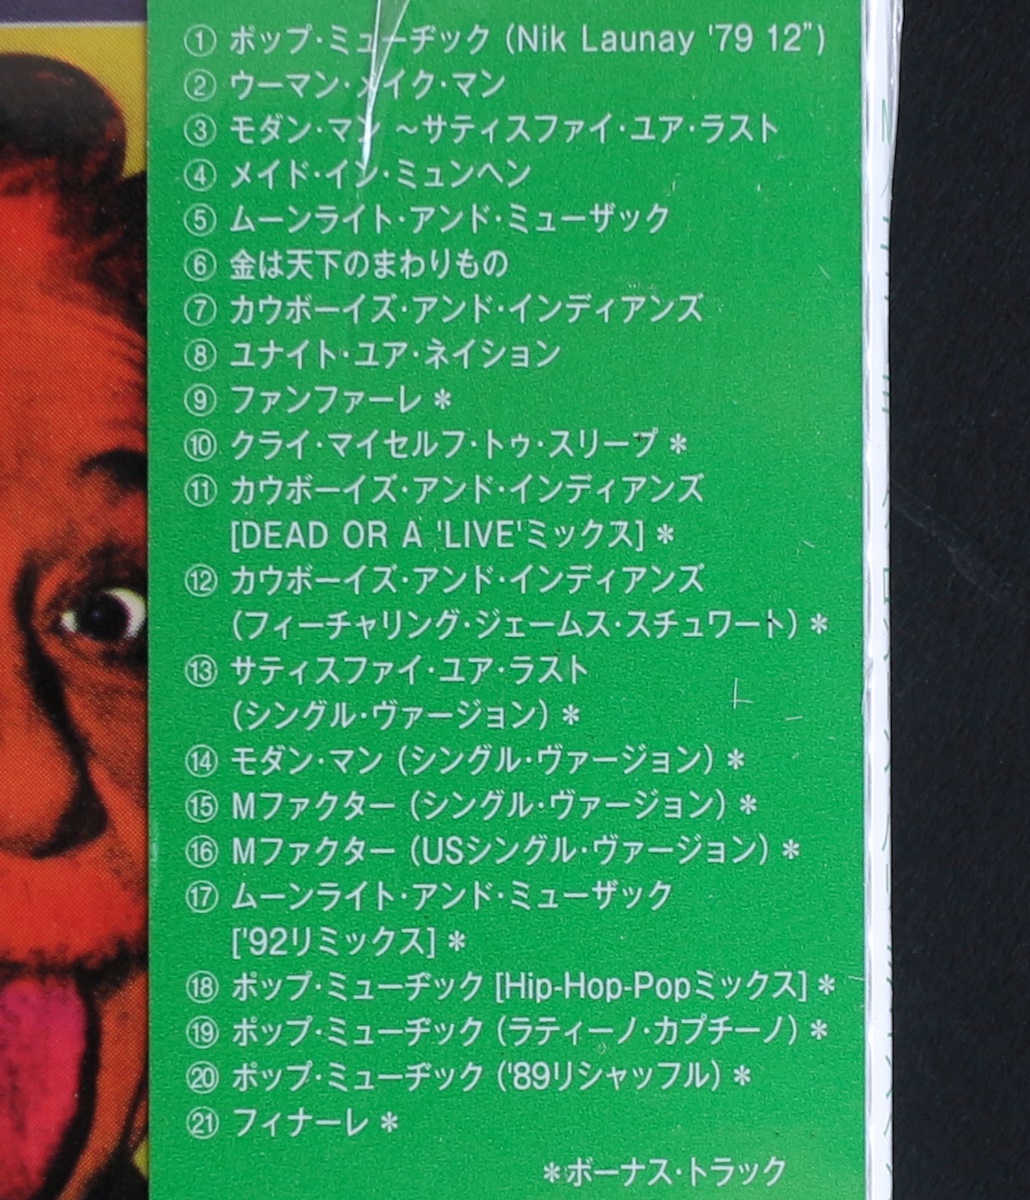 ① ポップ・ミューヂック (Nik Launay '79 12”)
② ウーマン・メイク・マン
③ モダン・マン ～サティスファイ・ユア・ラスト
④ メイド・イン・ミュンヘン
⑤ ムーンライト・アンド・ミューザック
⑥ 金は天下のまわりもの
⑦ カウボーイズ・アンド・インディアンズ
⑧ ユナイト・ユア・ネイション
⑨ ファンファーレ＊
⑩ クライ・マイセルフ・トゥ・スリープ＊
⑪ カウボーイズ・アンド・インディアンズ
[DEAD OR A 'LIVE'ミックス]＊
⑫ カウボーイズ・アンド・インディアンズ
(フィーチャリング・ジェームス・スチュワート)＊
⑬ サティスファイ・ユア・ラスト
(シングル・ヴァージョン)＊
⑭ モダン・マン (シングル・ヴァージョン)＊
⑮ Mファクター (シングル・ヴァージョン)＊
⑯ Mファクター (USシングル・ヴァージョン)＊
⑰ ムーンライト・アンド・ミューザック
['92リミックス]＊
⑱ ポップ・ミューヂック [Hip-Hop-Popミックス]＊
⑲ ポップ・ミューヂック (ラティーノ・カプチーノ)＊
⑳ ポップ・ミューヂック ('89リシャッフル)＊
㉑ フィナーレ＊
＊ボーナス・トラック